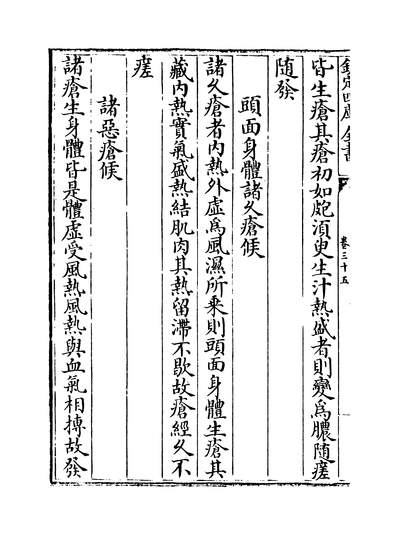 欽定四庫全書
卷三十五
皆生瘡其瘡初如皰湏㬰生汁熱盛者則變為膿随瘥
随發
頭面身體諸久瘡候
諸久瘡者内熱外虚為風濕所乘則頭面身體生瘡其
藏内熱實氣盛熱結肌肉其熱留滯不歇故瘡經久不
瘥
諸惡瘡候
諸瘡生身體皆是體虚受風熱風熱與血氣相摶故發